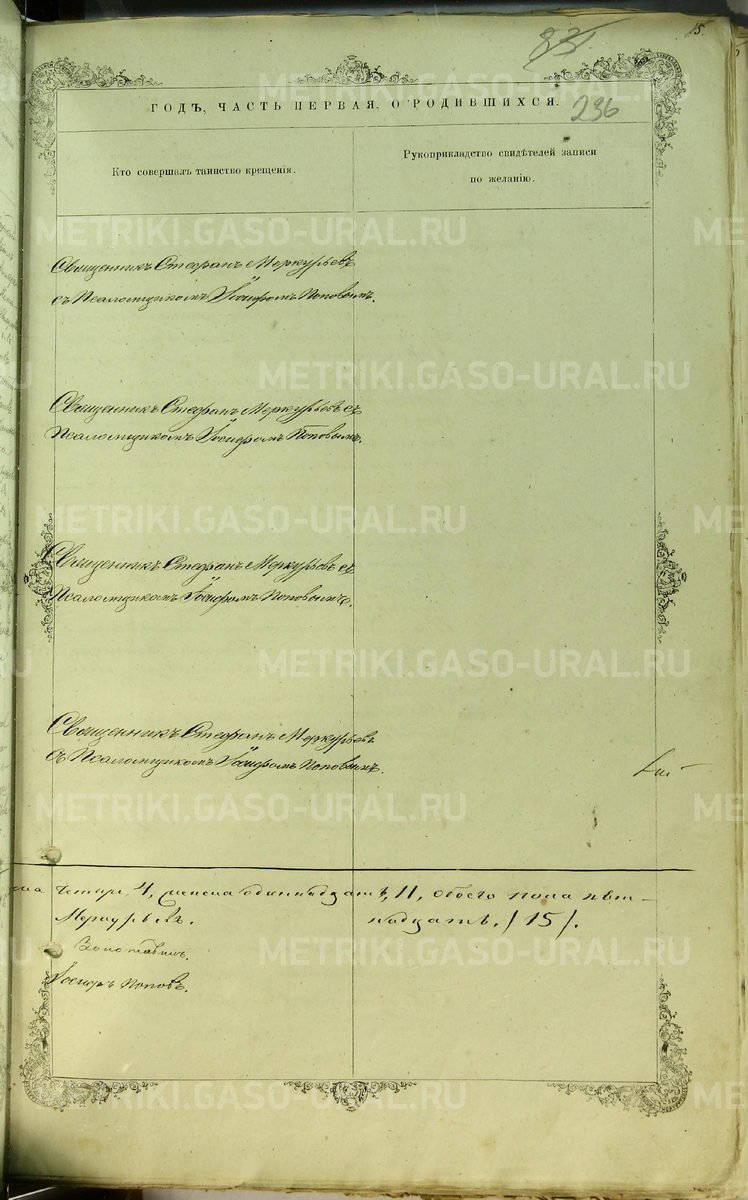 15.
236
ГОДЪ, ЧАСТЬ ПЕРВАЯ, О РОДИВШИХСЯ.
Кто совершалъ таинство крещенія.
Рукоприкладство свидѣтелей записи
по желанію.
Священникъ Стефанъ Меркурьевъ
съ Псаломщикомъ Іосифомъ Поповымъ.
Священникъ Стефанъ Меркурьевъ съ
Псаломщикомъ Іосифомъ Поповымъ.
Священникъ Стефанъ Меркурьевъ съ
Псаломщикомъ Іосифомъ Поповымъ.
Священникъ Стефанъ Меркурьевъ
съ Псаломщикомъ Іосифомъ Поповымъ.
четыре 4, женска одиннадцать, 11, обоего пола пят-
надцать. /15/.
Меркурьевъ.
Іосифъ Поповъ.
METRIKI.GASO-URAL.RU